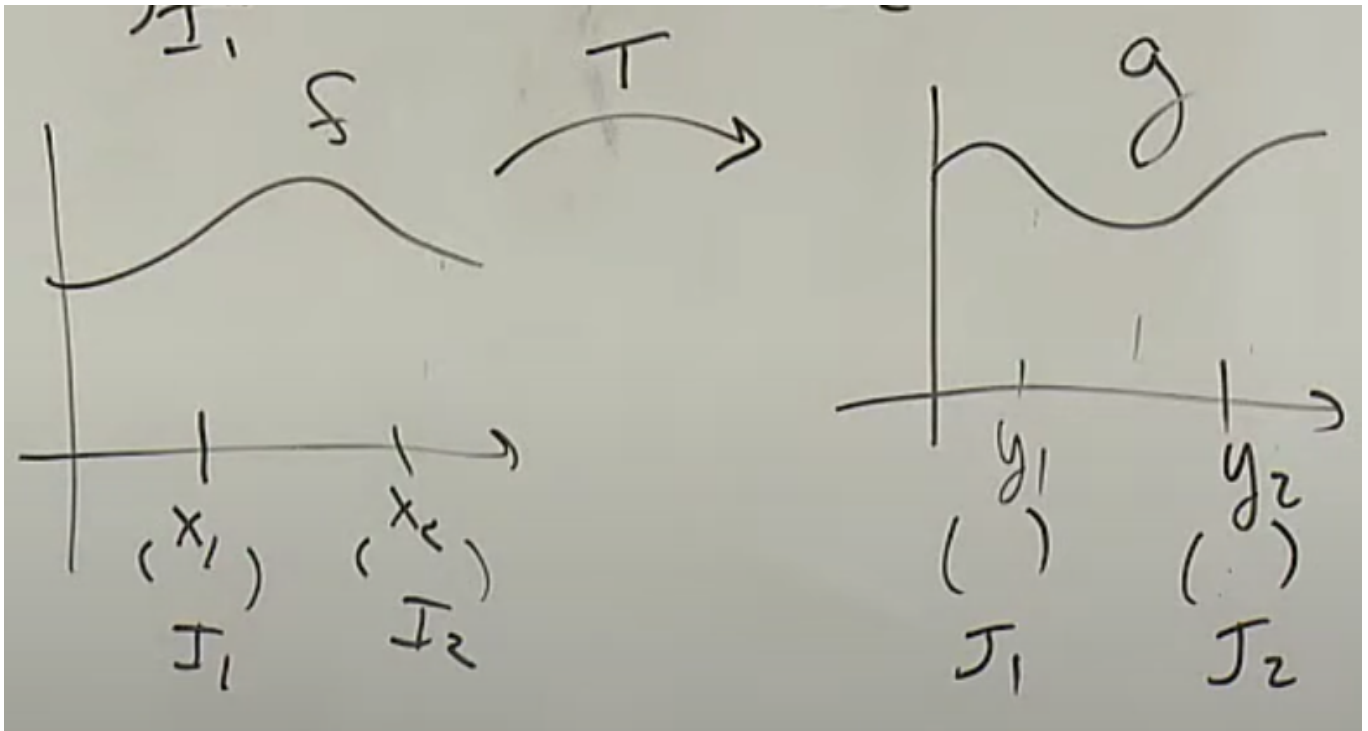 I₁
f
T
g
x₁
x₂
y₁
y₂
( )
( )
( )
( )
I₁
I₂
J₁
J₂